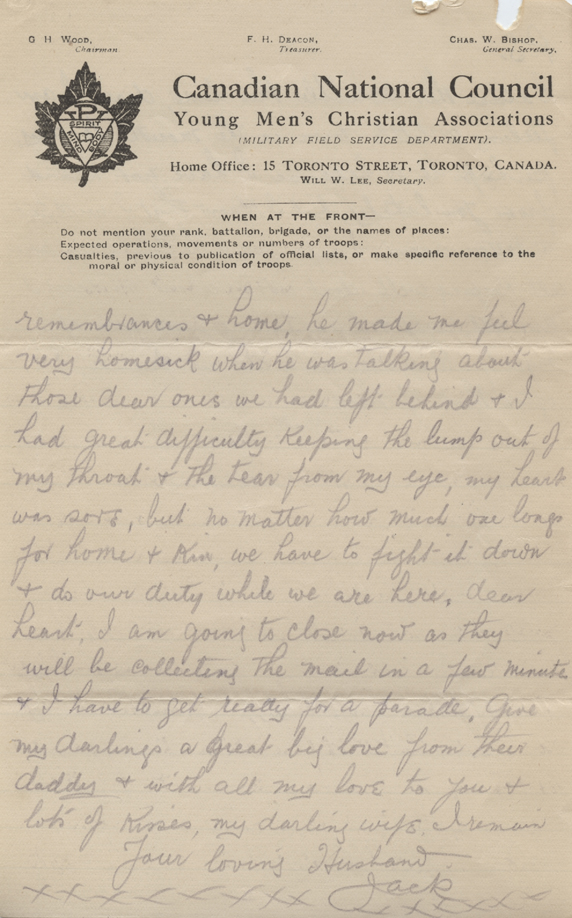 G. H. WOOD,
Chairman.
F. H. DEACON,
Treasurer.
CHAS. W. BISHOP,
General Secretary,
P
SPIRIT
MIND
BODY
Canadian National Council
Young Men's Christian Associations
(MILITARY FIELD SERVICE DEPARTMENT).
Home Office: 15 TORONTO STREET, TORONTO, CANADA.
WILL W. LEE, Secretary.
WHEN AT THE FRONT—
Do not mention your rank, battalion, brigade, or the names of places:
Expected operations, movements or numbers of troops:
Casualties, previous to publication of official lists, or make specific reference to the
moral or physical condition of troops.
remembrances & home, he made me feel
very homesick when he was talking about
those dear ones we had left behind & I
had great difficulty keeping the lump out of
my throat & the tear from my eye, my heart
was sore, but no matter how much one longs
for home & kin, we have to fight it down
& do our duty while we are here, dear
heart, I am going to close now as they
will be collecting the mail in a few minute
& I have to get ready for a parade, Give
my darlings a great big love from their
daddy & with all my love to you &
lots of kisses, my darling wife, I remain
Your loving Husband
Jack
x x x x x x x x x x x x x x